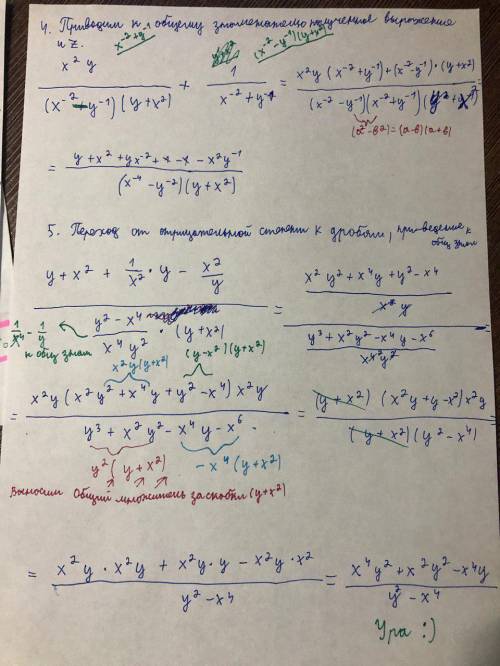 4. Приводим к общему знаменателю полученное выражение
и z.
x⁻²+y (x⁻²-y⁻¹)(y+x²)
x² y / (x⁻² - y⁻¹)(y+x²) + 1 / x⁻²+y⁻¹ = x²y (x⁻²+y⁻¹)+(x⁻²-y⁻¹)·(y+x²) / (x⁻²-y⁻¹)(x⁻²+y⁻¹)(y+x²) =
(a²-b²)=(a-b)(a+b)
= y+x²+yx⁻²+1-1-x²y⁻¹ / (x⁻⁴-y⁻²)(y+x²)
5. Переход от отрицательной степени к дробям, приведение к
общ знам
y+x² + 1/x² · y - x²/y / y²-x⁴ / x⁴y² · (y+x²) = x²y²+x⁴y+y²-x⁴ / x²y / y³+x²y²-x⁴y-x⁶ / x⁴y²
1/x⁴ - 1/y
к общ знам
x²y(y+x²) (y-x²)(y+x²)
= x²y (x²y²+x⁴y+y²-x⁴) x²y / y³+x²y²-x⁴y-x⁶ = (y+x²) (x²y+y-x²) x²y / (y+x²)(y²-x⁴) =
y²(y+x²) -x⁴(y+x²)
Выносим общий множитель за скобки (y+x²)
= x²y·x²y + x²y·y - x²y·x² / y²-x⁴ = x⁴y²+x²y²-x⁴y / y²-x⁴
Ура :)